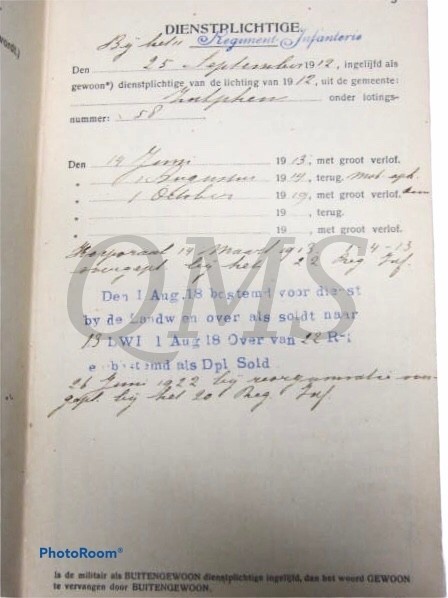 DIENSTPLICHTIGE.
Bij het Regiment Infanterie
Den 25 September 1912, ingelijfd als
gewoon*) dienstplichtige van de lichting van 1912, uit de gemeente:
Zutphen onder lotings-
nummer: 58
Den 19 Juni 1913, met groot verlof.
" 1 Augustus 1914, terug. Mob.
" 1 October 1919, met groot verlof.
" 19 , terug.
" 19 , met groot verlof.
Korporaal 14 Maart 1913. 1-4-13
overgepl bij het 22 Reg Inf
QMS
Den 1 Aug. 18 bestemd voor dienst
by de Landw en over als soldt naar
13 LWI 1 Aug 18 Over van 22 R-I
bestemd als Dpl Sold
26 Juni 1922 bij reorganisatie over
gepl. bij het 20 Reg Inf
PhotoRoom®
Is de militair als BUITENGEWOON dienstplichtige ingelijfd, dan het woord GEWOON
te vervangen door BUITENGEWOON.